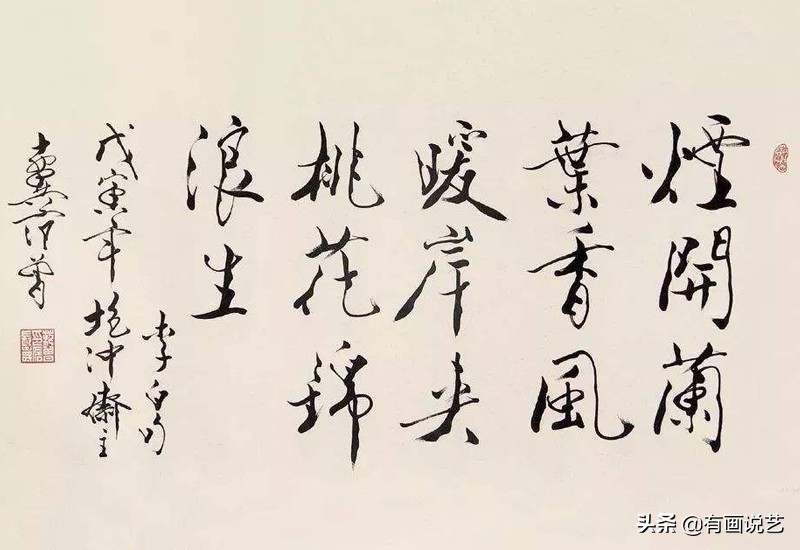 煙開蘭
葉香風
暖岸夾
桃花錦
浪生
李白句
戊寅年抱冲齋主
十翼范曾
头条 @有画说艺